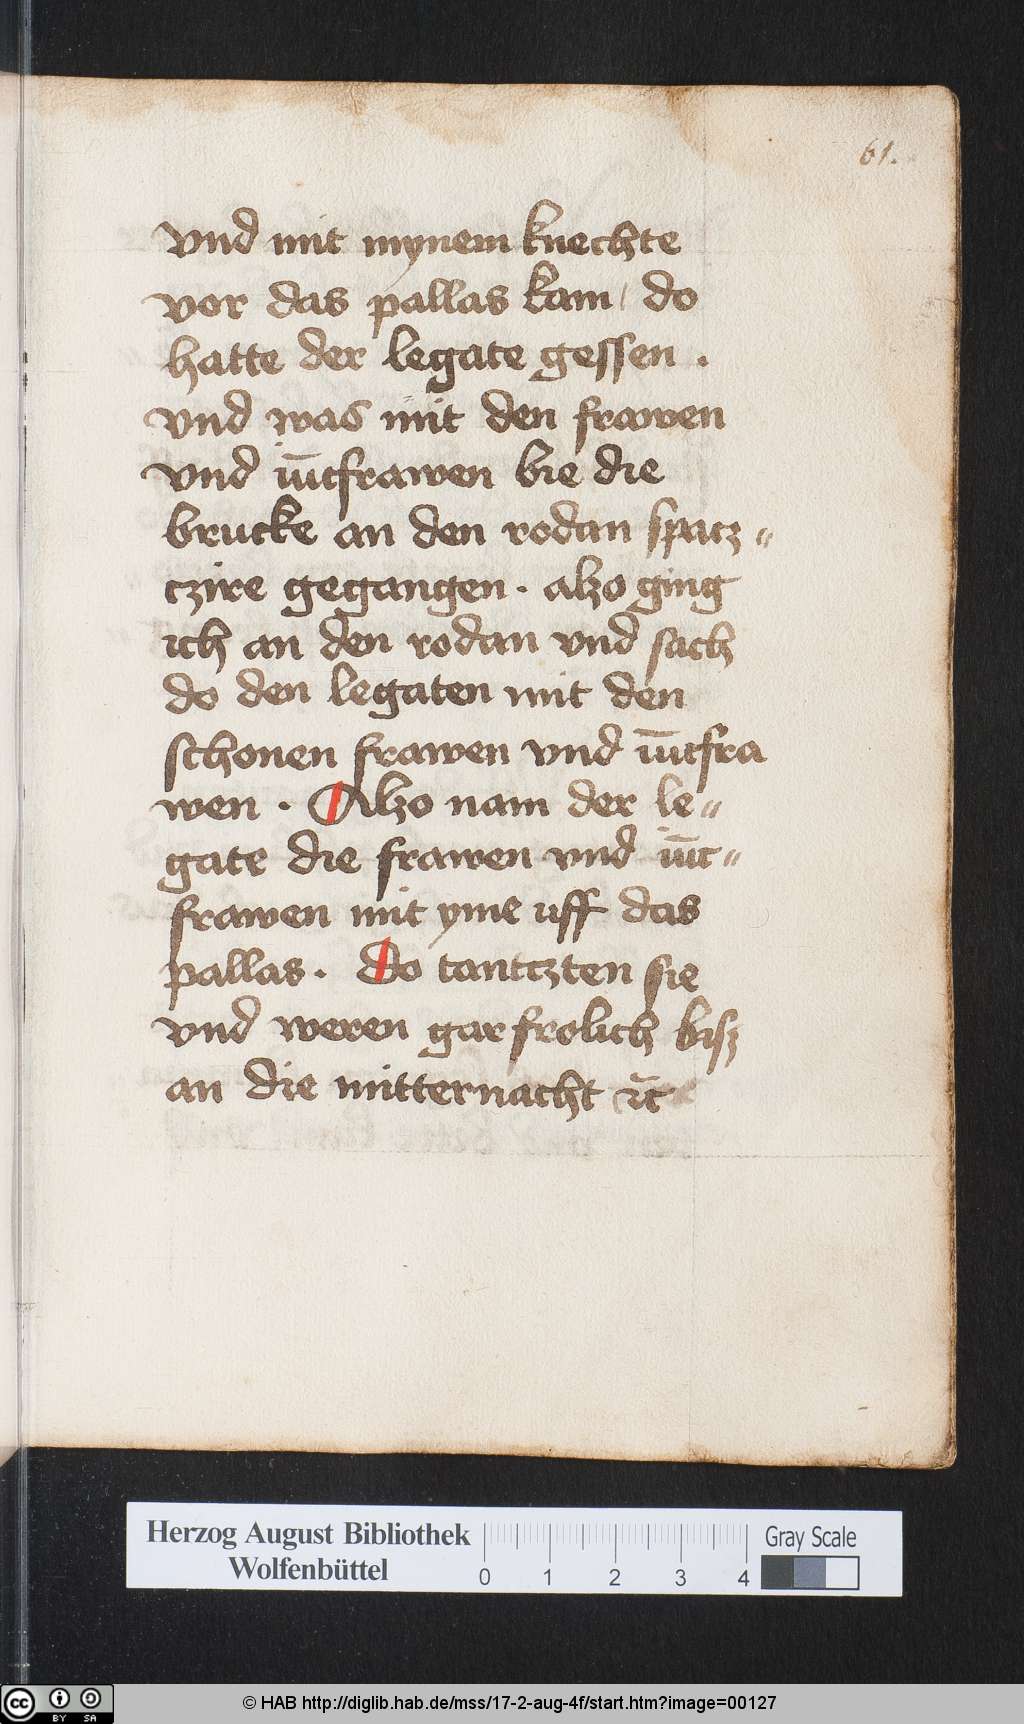 61.
vnd mit mynem knechte
vor das pallas kam / do
hatte der legate gessen .
vnd was mit den frawen
vnd iūcfrawen bie die
brucke an den rodan spacz〃
czire gegangen . alzo ging
ich an den rodan vnd sach
do den legaten mit den
schonen frawen vnd iūcfra
wen . Alzo nam der le〃
gate die frawen vnd iūc〃
frawen mit yme uff das
pallas . do tantczten sie
vnd weren gar frolich bisz
an die mitternacht ꝛc̄
Herzog August Bibliothek
Wolfenbüttel
0 1 2 3 4
Gray Scale
cc BY SA
© HAB http://diglib.hab.de/mss/17-2-aug-4f/start.htm?image=00127